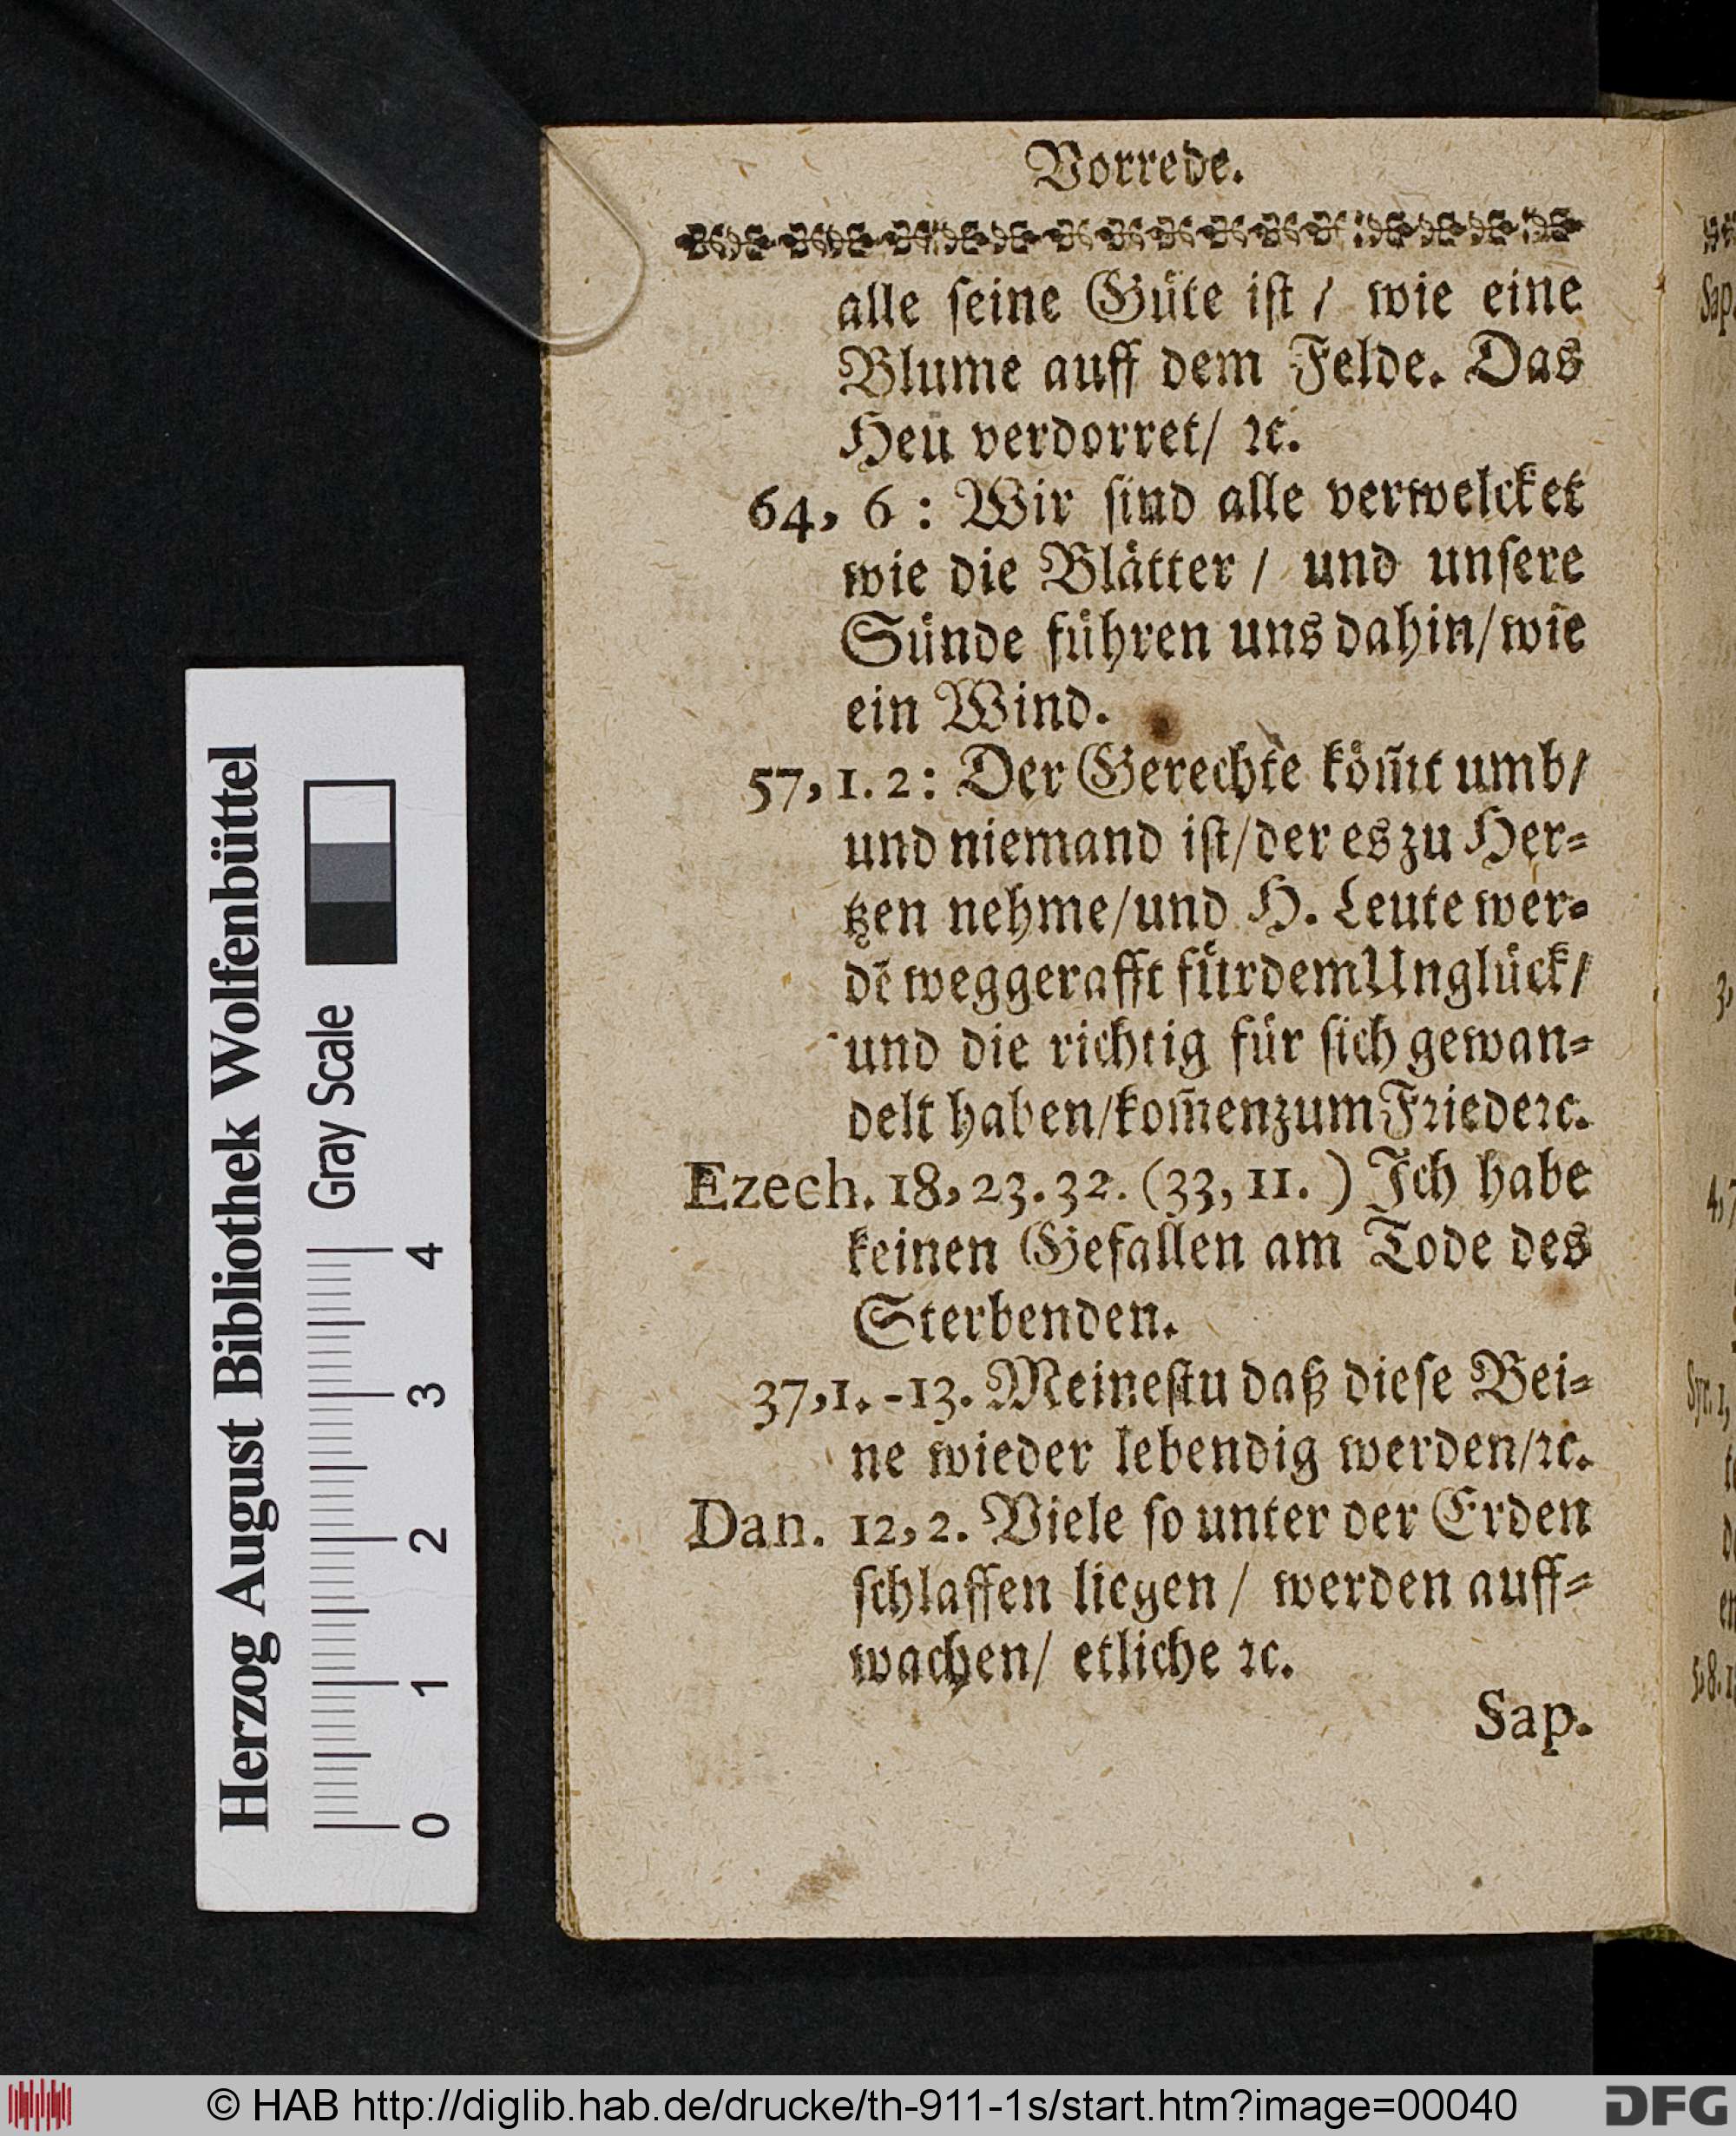 Vorrede.
alle ſeine Guͤte iſt / wie eine
Blume auff dem Felde. Das
Heu verdorret/ ꝛc.
64, 6 : Wir ſind alle verwelcket
wie die Blaͤtter / und unſere
Suͤnde fuͤhren uns dahin/wie
ein Wind.
57, 1. 2: Der Gerechte koͤm̃t umb/
und niemand iſt/der es zu Her⸗
tzen nehme/und H. Leute wer⸗
dē weggerafft fuͤr dem Ungluͤck/
und die richtig fuͤr ſich gewan⸗
delt haben/kom̃en zum Friede ꝛc.
Ezech. 18, 23. 32. (33, 11. ) Ich habe
keinen Gefallen am Tode des
Sterbenden.
37, 1. -13. Meineſtu daß dieſe Bei⸗
ne wieder lebendig werden/ꝛc.
Dan. 12, 2. Viele ſo unter der Erden
ſchlaffen liegen / werden auff⸗
wachen/ etliche ꝛc.
Sap.
Sap.
3,
4, 7
Syr. 1,
5. 8. 1
Herzog August Bibliothek Wolfenbüttel
Gray Scale
0 1 2 3 4
© HAB http://diglib.hab.de/drucke/th-911-1s/start.htm?image=00040
DFG